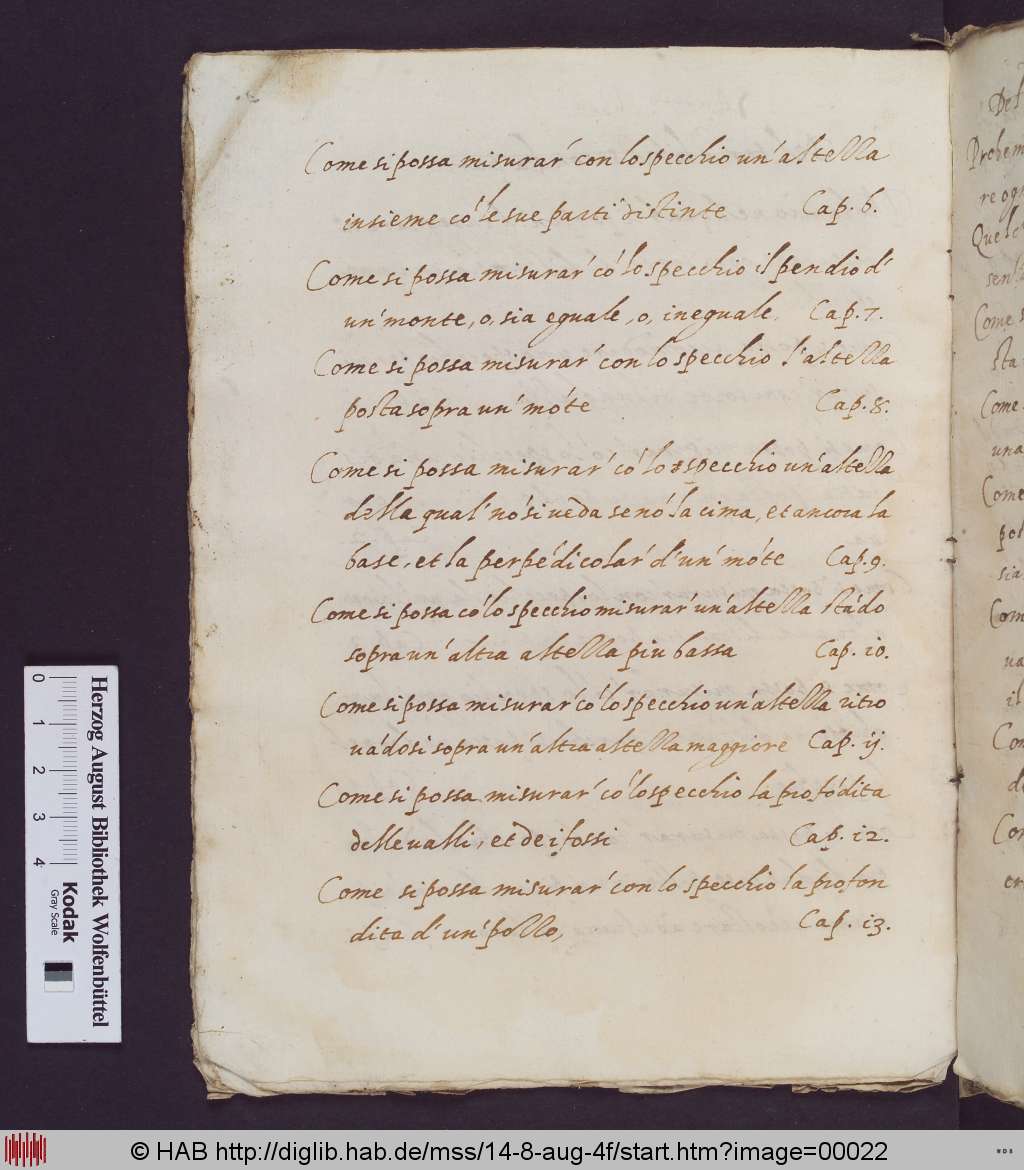 Come si possa misurar' con lo specchio un' altezza
insieme có le sue parti distinte Cap. 6.
Come si possa misurar' có lo specchio il pendio d'
un' monte, o, sia eguale, o, ineguale. Cap. 7.
Come si possa misurar' con lo specchio l'altezza
posta sopra un' móte Cap. 8.
Come si possa misurar' có lo specchio un' altezza
della qual' nó si veda se nó la cima, et ancora la
base, et la perpédicolar' d' un' móte Cap. 9.
Come si possa có lo specchio misurar' un' altezza stádo
sopra un' altra altezza piu bassa Cap. 10.
Come si possa misurar' có lo specchio un' altezza ritro
uádosi sopra un' altra altezza maggiore Cap. ij.
Come si possa misurar' có lo specchio la profódita
delle ualli, et de i fossi Cap. 12.
Come si possa misurar' con lo specchio la profon
dita d' un' pozzo, Cap. 13.
Del
Prohem
re ogn
Come s
sta
Come
una
Come
pos
sia
Com
ua
il
Con
de
Con
er
0 1 2 3 4
Herzog August Bibliothek Wolfenbüttel
Kodak
Gray Scale
© HAB http://diglib.hab.de/mss/14-8-aug-4f/start.htm?image=00022
WDB